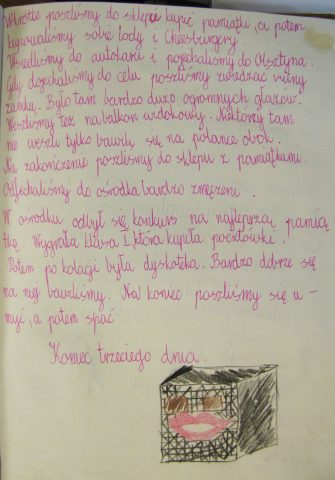 Wkrótce poszliśmy do sklepu kupić pamiątki, a potem
kupowaliśmy sobie lody i cheesburgery.
Wsiedliśmy do autokaru i pojechaliśmy do Olsztyna.
Gdy dojechaliśmy do celu poszliśmy zwiedzać ruiny
zamku. Było tam bardzo dużo ogromnych głazów.
Weszliśmy też na balkon widokowy. Niektórzy tam
nie weszli tylko bawili się na polance obok.
Na zakończenie poszliśmy do sklepu z pamiątkami.
Odjechaliśmy do ośrodka bardzo zmęczeni.
W ośrodku odbył się konkurs na najlepszą pamią
tkę. Wygrała I, która kupiła pocztówki.
Potem po kolacji była dyskoteka. Bardzo dobrze się
na niej bawiliśmy. Na koniec poszliśmy się u-
myć, a potem spać.
Koniec trzeciego dnia.